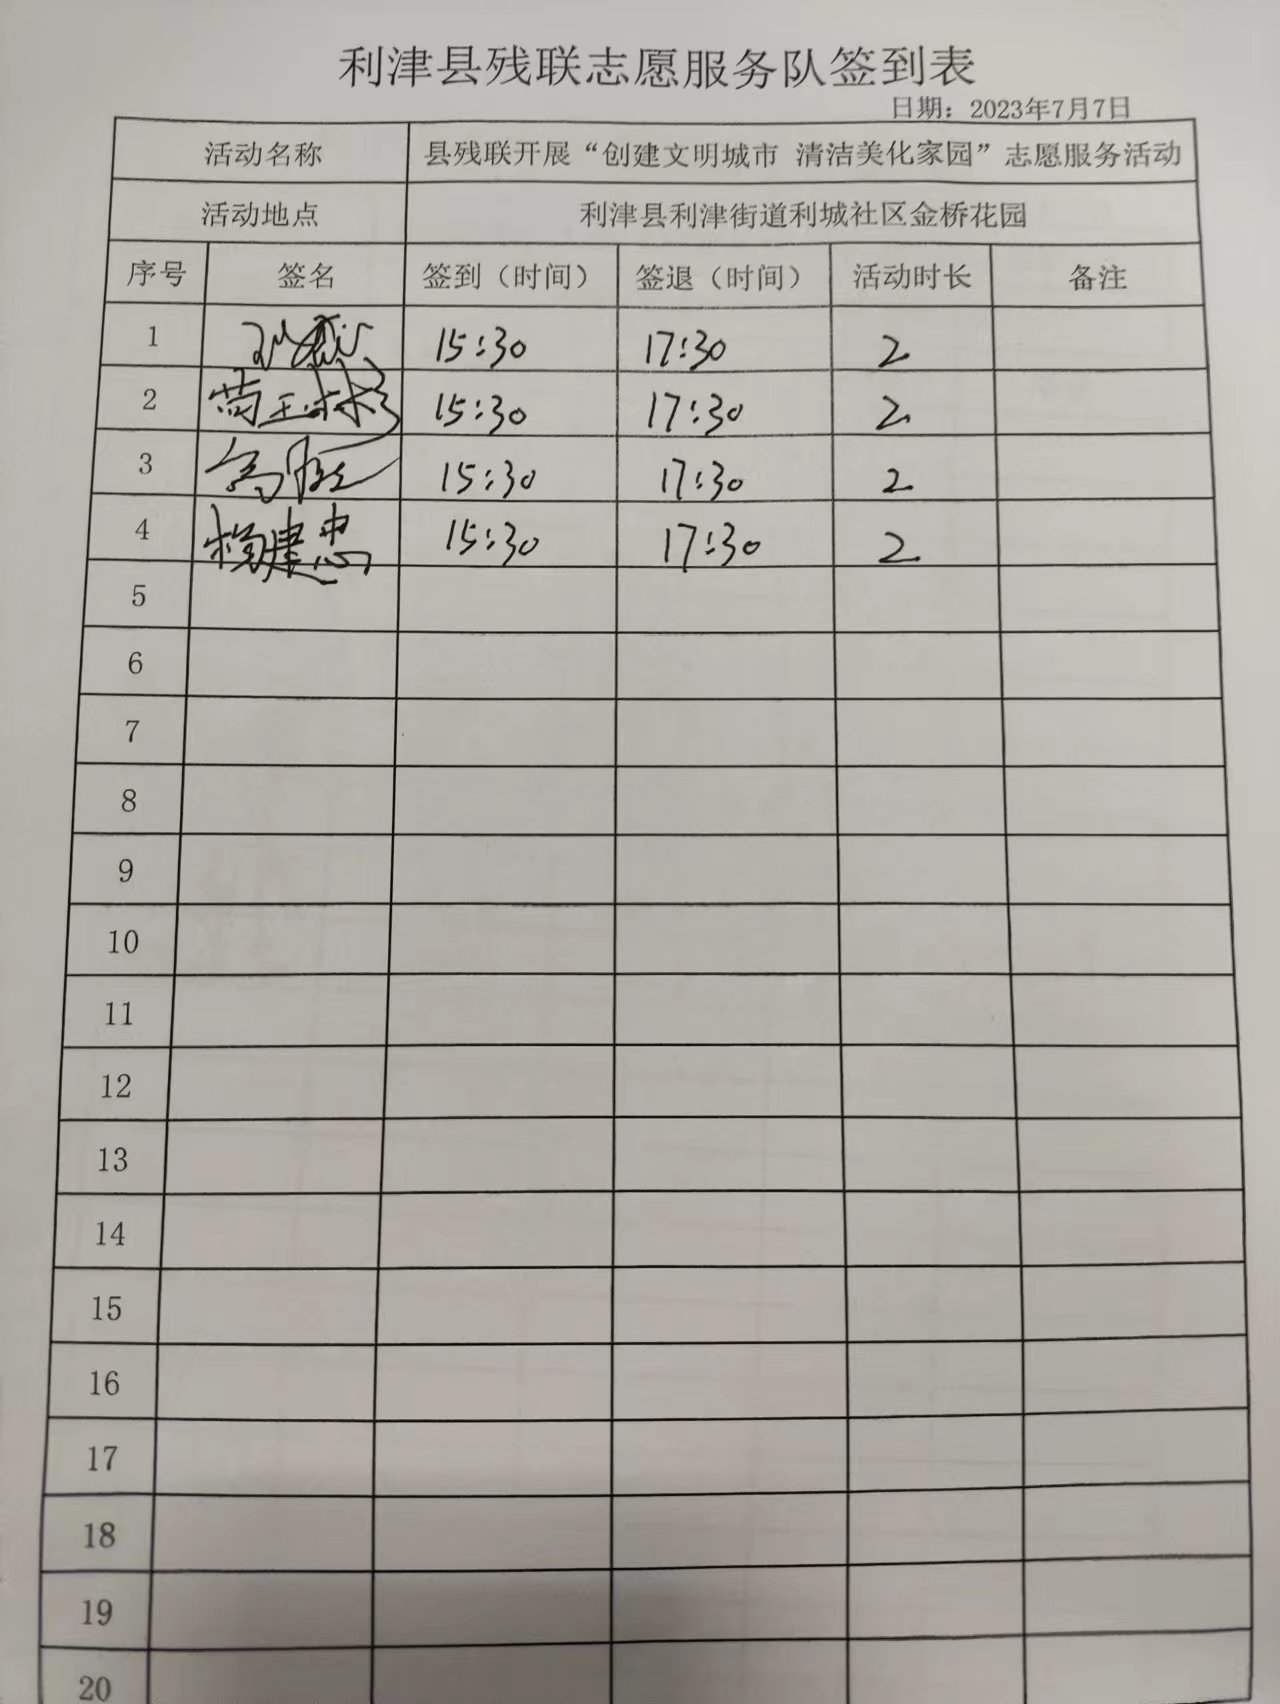 利津县残联志愿服务队签到表
日期：2023年7月7日
活动名称 县残联开展“创建文明城市 清洁美化家园”志愿服务活动
活动地点 利津县利津街道利城社区金桥花园
序号 签名 签到（时间） 签退（时间） 活动时长 备注
1 15:30 17:30 2
2 15:30 17:30 2
3 15:30 17:30 2
4 杨建忠 15:30 17:30 2
5
6
7
8
9
10
11
12
13
14
15
16
17
18
19
20